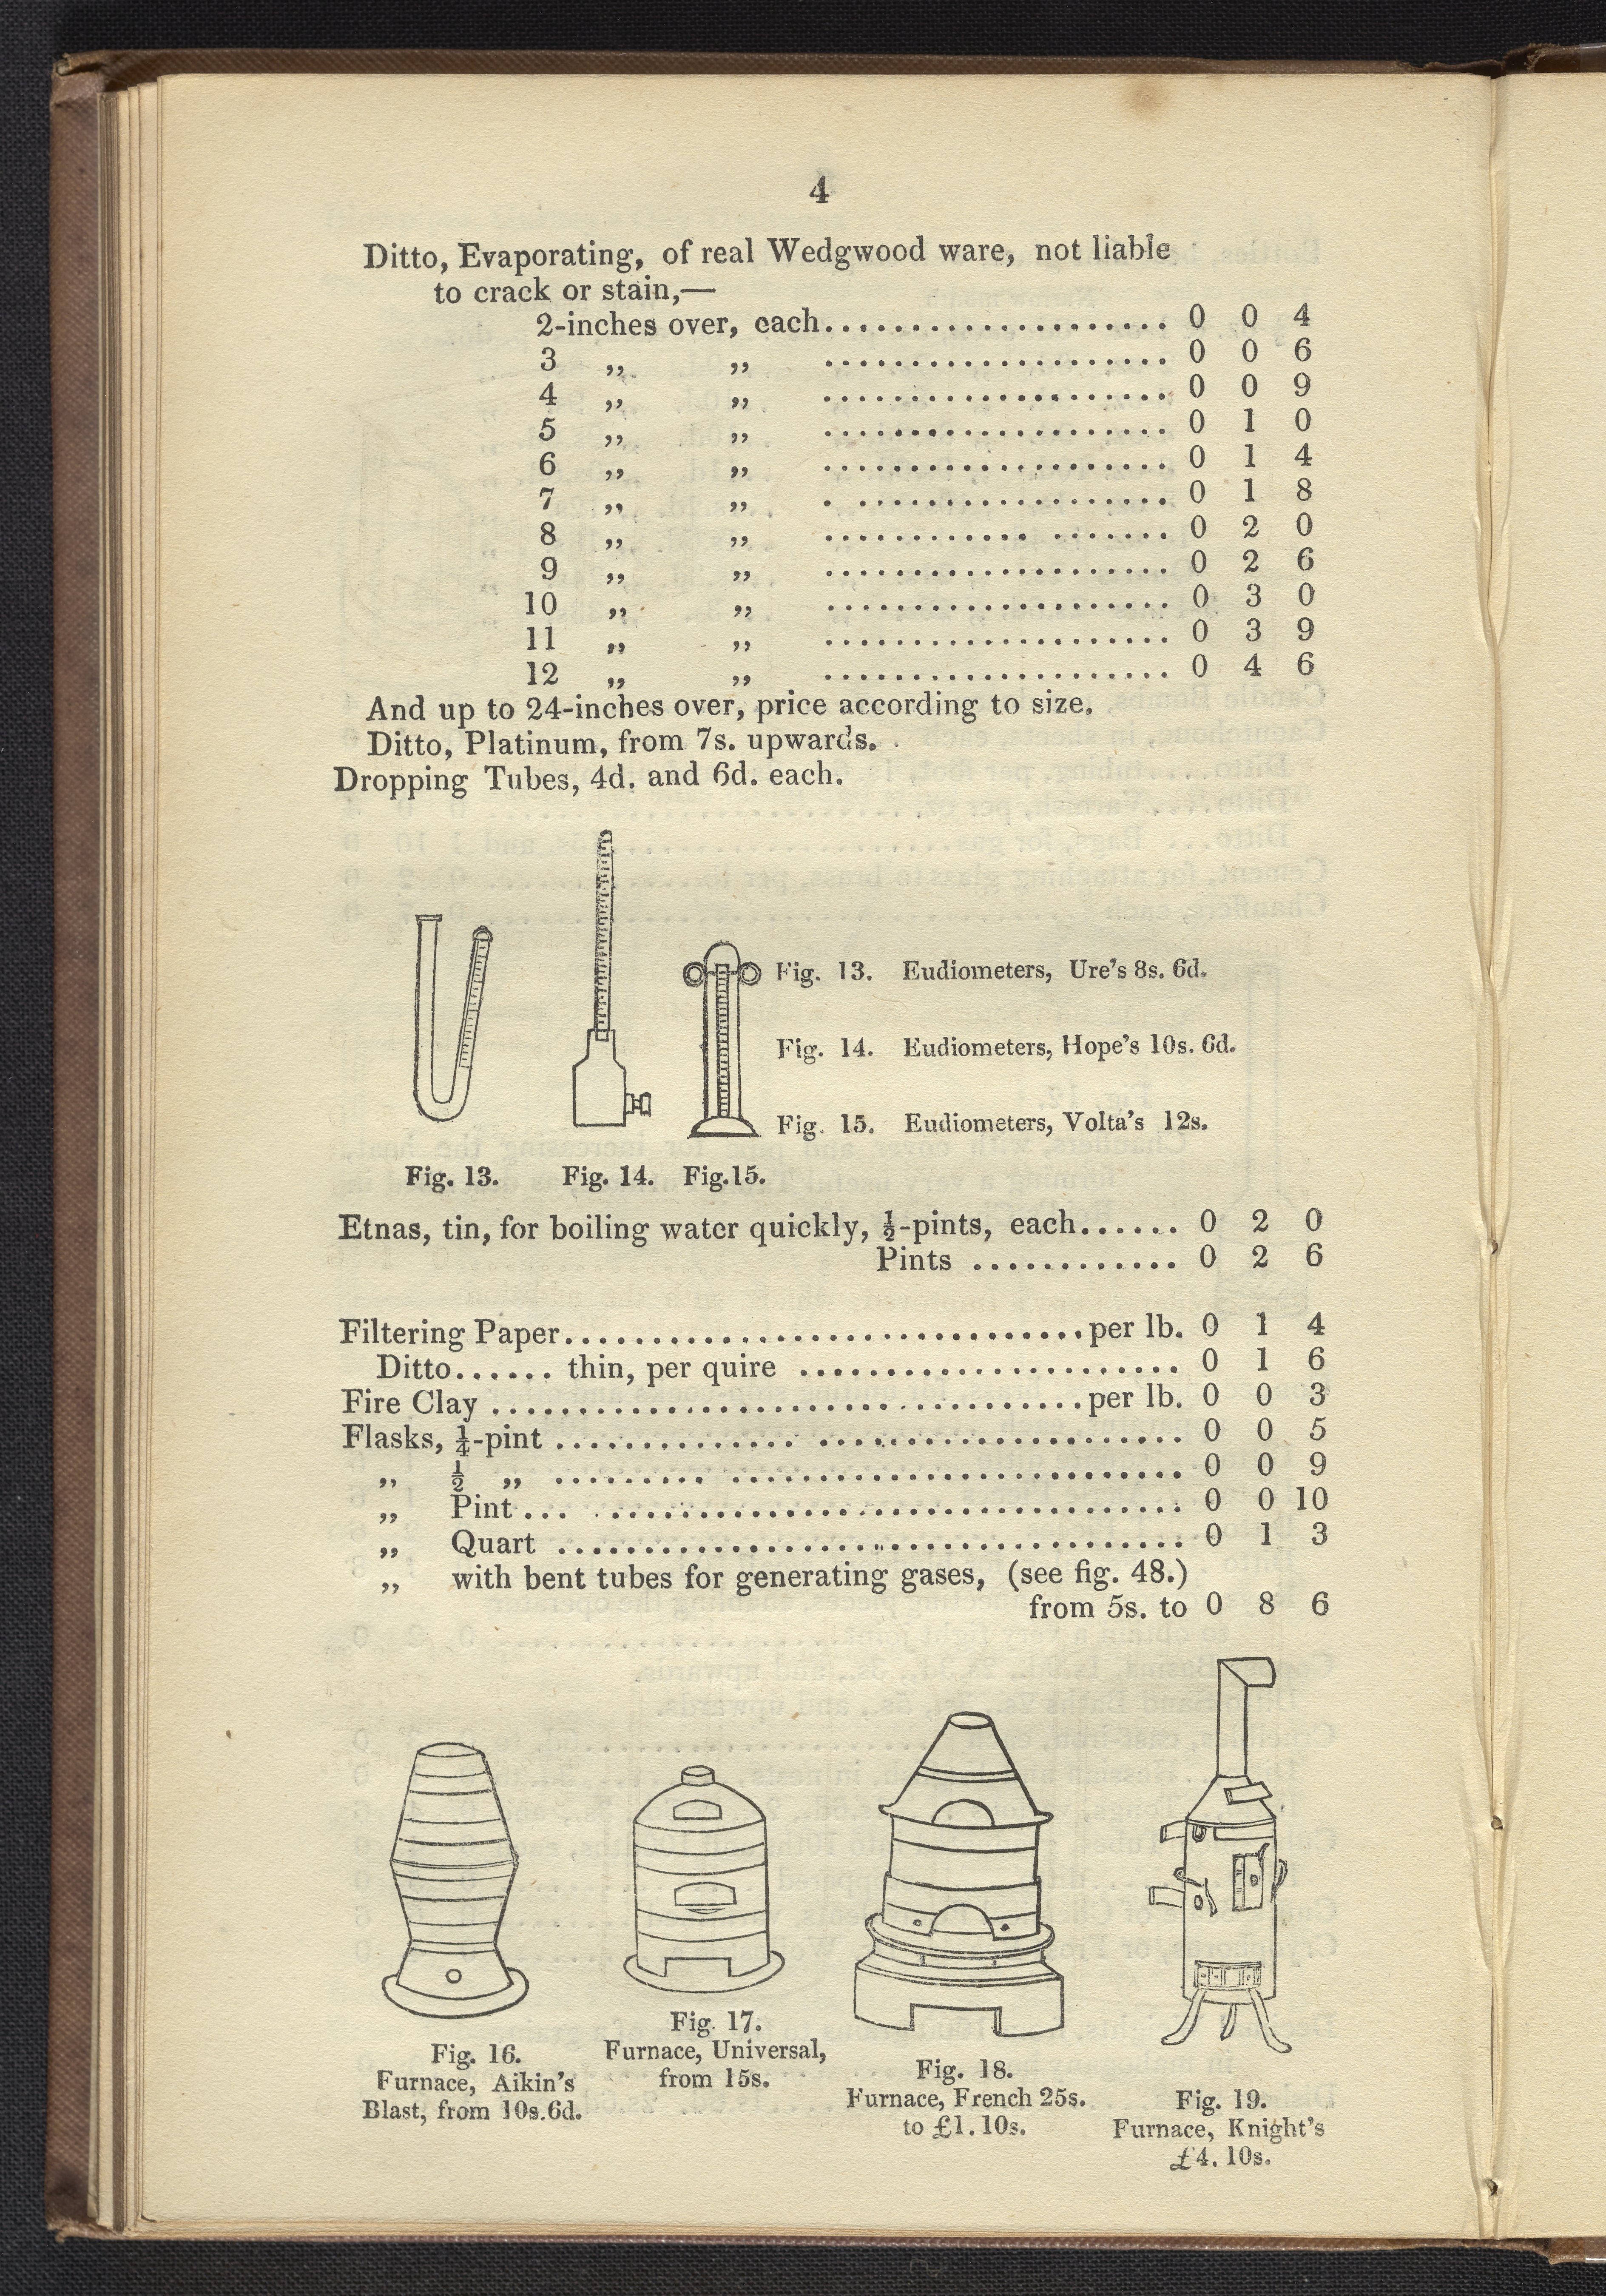 4
Ditto, Evaporating, of real Wedgwood ware, not liable
to crack or stain,—
2-inches over, each.................... 0 0 4
3 ,, ,, .................... 0 0 6
4 ,, ,, .................... 0 0 9
5 ,, ,, .................... 0 1 0
6 ,, ,, .................... 0 1 4
7 ,, ,, . .................. 0 1 8
8 ,, ,, ............ ....... 0 2 0
9 ,, ,, .................... 0 2 6
10 ,, ,, .................... 0 3 0
11 ,, ,, .................... 0 3 9
12 ,, ,, .................... 0 4 6
And up to 24-inches over, price according to size.
Ditto, Platinum, from 7s. upwards.
Dropping Tubes, 4d. and 6d. each.
Fig. 13. Eudiometers, Ure's 8s. 6d.
Fig. 14. Eudiometers, Hope's 10s. 6d.
Fig. 15. Eudiometers, Volta's 12s.
Fig. 13. Fig. 14. Fig.15.
Etnas, tin, for boiling water quickly, ½-pints, each...... 0 2 0
Pints ............ 0 2 6
Filtering Paper..............................per lb. 0 1 4
Ditto...... thin, per quire ...................... 0 1 6
Fire Clay ..................................per lb. 0 0 3
Flasks, ¼-pint .............. ..................... 0 0 5
,, ½ ,, ......... .......................... 0 0 9
,, Pint... . ................................. 0 0 10
,, Quart .................................... 0 1 3
,, with bent tubes for generating gases, (see fig. 48.)
from 5s. to 0 8 6
Fig. 16.
Furnace, Aikin's
Blast, from 10s.6d.
Fig. 17.
Furnace, Universal,
from 15s.
Fig. 18.
Furnace, French 25s.
to £1. 10s.
Fig. 19.
Furnace, Knight's
£4. 10s.